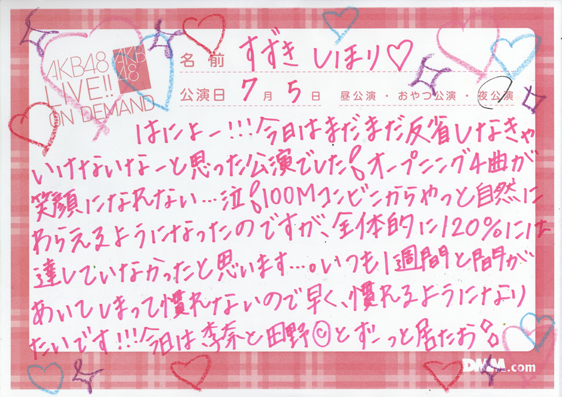 AKB48
LIVE!!
ON DEMAND
AKB
48
名前 すずき しほり♡
公演日 7月5日 昼公演・おやつ公演・夜公演
はにょー!!!今日はまだまだ反省しなきゃ
いけないなーと思った公演でした!オープニング4曲が
笑顔になれない…泣!100Mコンビニからやっと自然に
わらえるようになったのですが、全体的に120%には
達していなかったと思います…。いつも1週間と間が
あいてしまって慣れないので早く、慣れるようになり
たいです!!!今日は、李奈と田野©とずーっと居たお
DMM.com